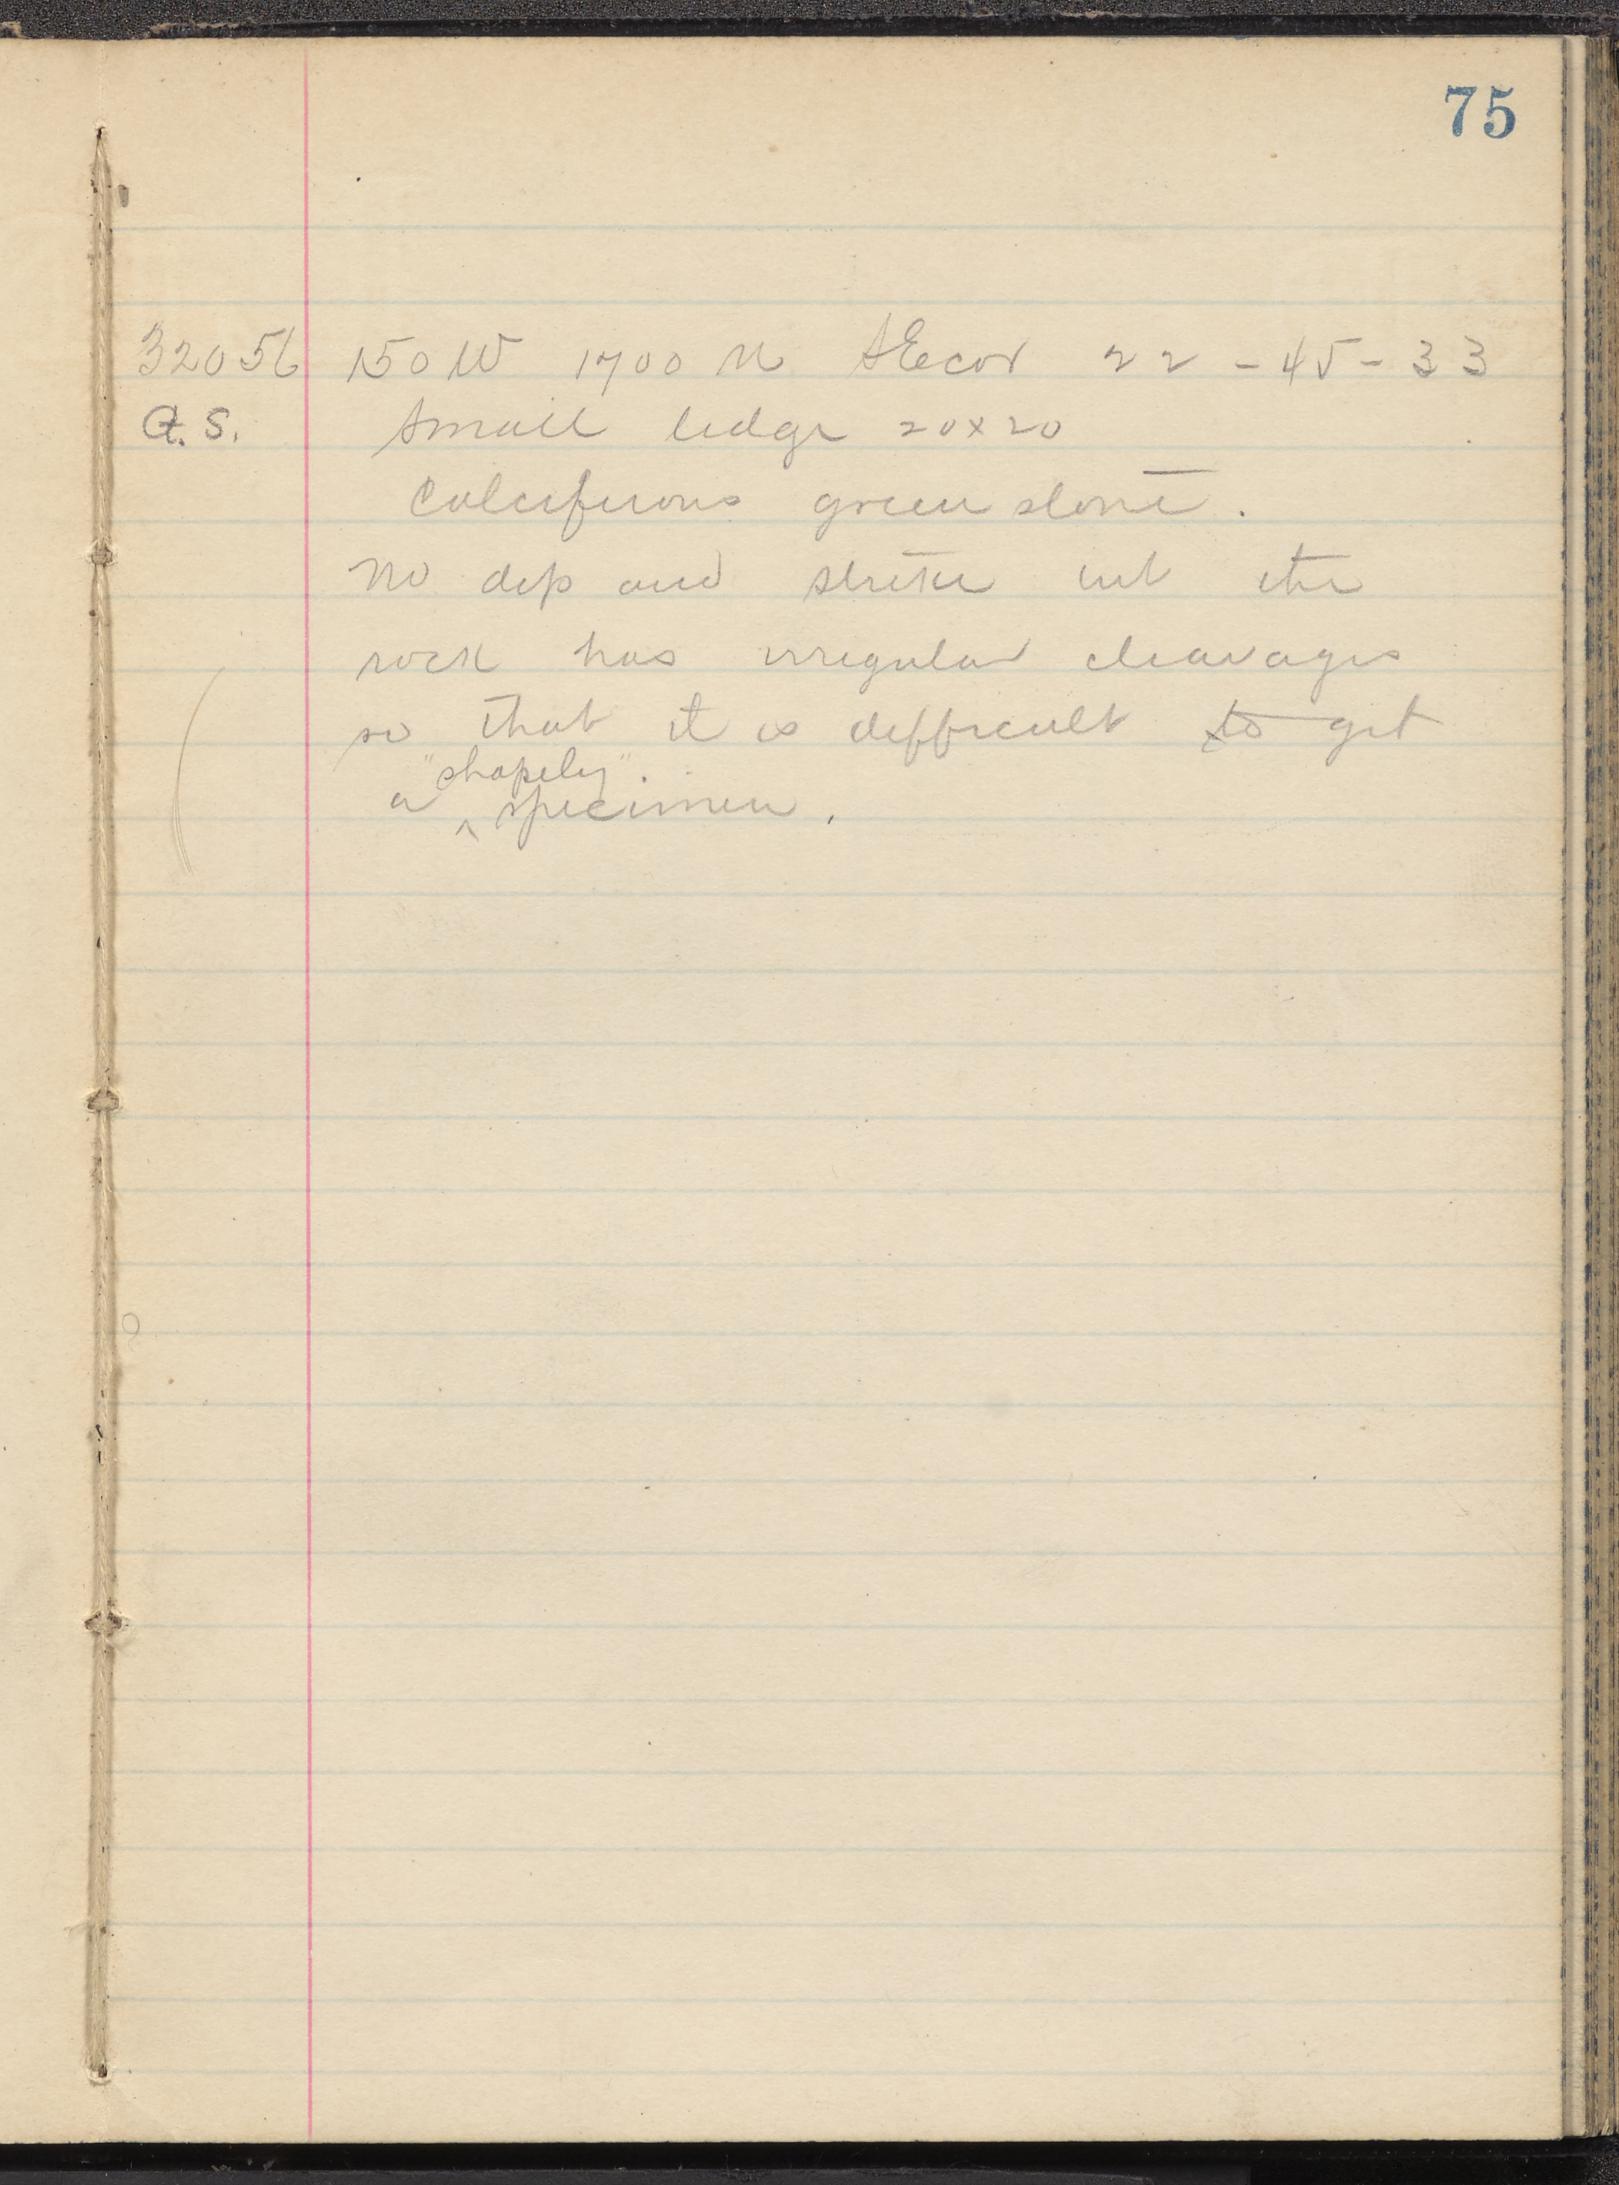 75
32056 150 W 1700 N SEcor 22 - 45 - 33
A. S. Small ledge 20x20
Calciferous green stone.
No dip and strike but the
rock has irregular cleavages
so that it is difficult to get
"shapely".
a ^ specimen.